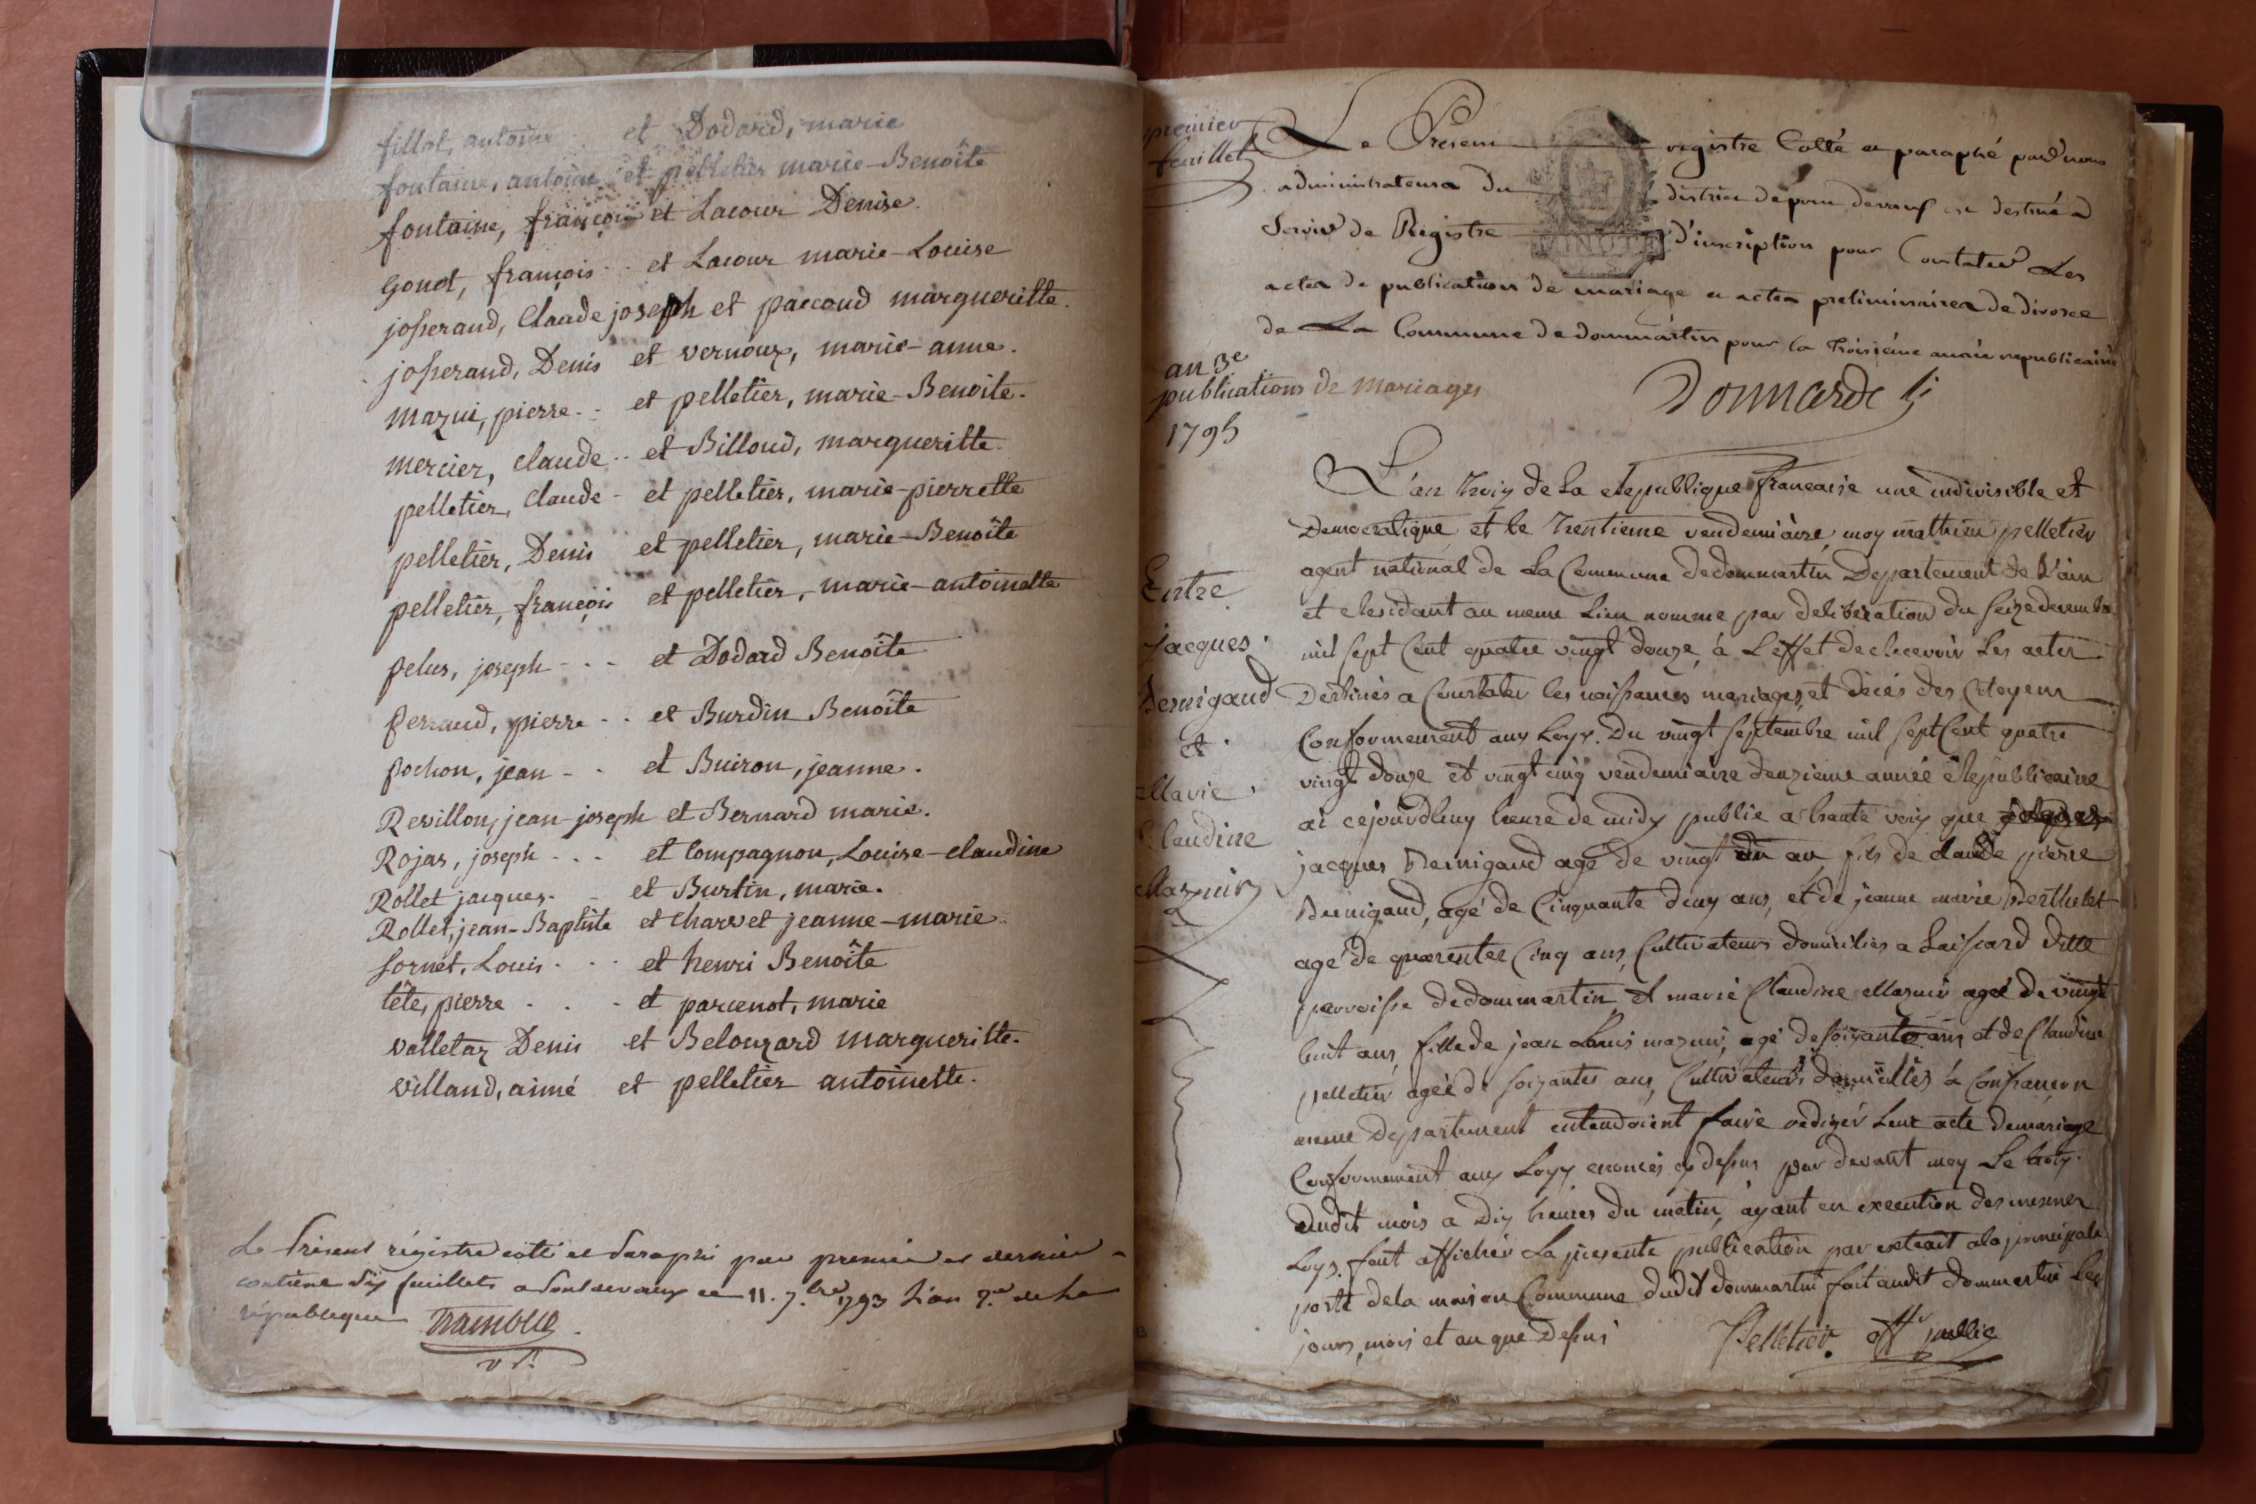 fillot, antoine et Dodard, marie
fontaine, antoine et pelletier marie-Benoîte
fontaine, françois et Lacour Denise
Gonot, françois - - et Lacour marie-Louise
josserand, Claude joseph et paccoud margueritte.
josserand, Denis et vernoux, marie-anne.
mazui, pierre - - et pelletier, marie-Benoite.
mercier, claude - - et Billoud, margueritte.
pelletier, claude - et pelletier, marie-pierrette
pelletier, Denis et pelletier, marie-Benoîte
pelletier, françois et pelletier, marie-antoinette
pelus, joseph - - - et Dodard Benoîte
perraud, pierre - - et Burdin Benoîte
pochon, jean - - et Buiron, jeanne.
Revillon, jean-joseph et Bernard marie.
Rojas, joseph - - - et Compagnon, Louise-claudine
Rollet jacques. - et Burtin, marie.
Rollet, jean-Baptiste et charvet jeanne-marie
sornet, Louis - - - et henri Benoîte
tête, pierre - - - et parcenot, marie
valletaz Denis et Belouzard margueritte.
villand, aimé et pelletier antoinette.
Le present régistre cotté et paraphé par premier et dernier
contient dix feuillets a pontdevaux ce 11. 7.bre 1793 L'an 2.e de la
république
premier
feuillet
Le Présent registre Cotté et paraphé par nous
administrateurs du district de pont devaux est destiné a
Servir de Registre d'inscription pour Constater Les
MINUTE
actes de publication de mariage et actes preliminaires de divorce
de La Commune de dommartin pour la troisiéme année republicaine
an 3e
publications de mariages
1795
L'an trois de la Republique francaise une indivisible et
Democratique et le trentieme vendemiaire, moy mathieu pelletier
agent national de La Commune de dommartin Departement de L'ain
et Residant au meme Lieu nomme par deliberation du seize decembre
mil sept Cent quatre vingt douze, à L'effet de Recevoir Les actes
Destinés a Constater les naissances mariages, et décés des Citoyens
Conformement aux Loys. Du vingt septembre mil sept Cent quatre
vingt douze et vingt cinq vendemiaire deuzieme année Républicaine
ai cejourdhuy heure de midy publie a haute voix que
jacques Bernigaud agé de vingt un an fils de claude pierre
Bernigaud, agé de Cinquante deux ans, et de jeanne marie Berthelet
agé de quarente Cinq ans, Cultivateurs domiciliés a Laissard ditte
parroisse de dommartin, et marie Claudine Mazuir ageé de vingt
huit ans, fille de jean Louis mazuir, agé de soixante ans et de Claudine
pelletier ageé de soixantes ans, Cultivateurs domicilliés à Confrancon
meme Departement entendoient faire rediger Leur acte de mariage
Conformement aux Loyx enoncés cy dessus par devant moy Le
dudit mois a Dix heures du matin, ayant en execution des mesmes
Loys. fait afficher La presente publication par extrait a la principale
porte de la maison Commune dudit dommartin fait audit dommartin Les
jours, mois et an que Dessus
Pelletier. off public
Entre
jacques
Bernigaud
et
Marie
Claudine
Mazuir